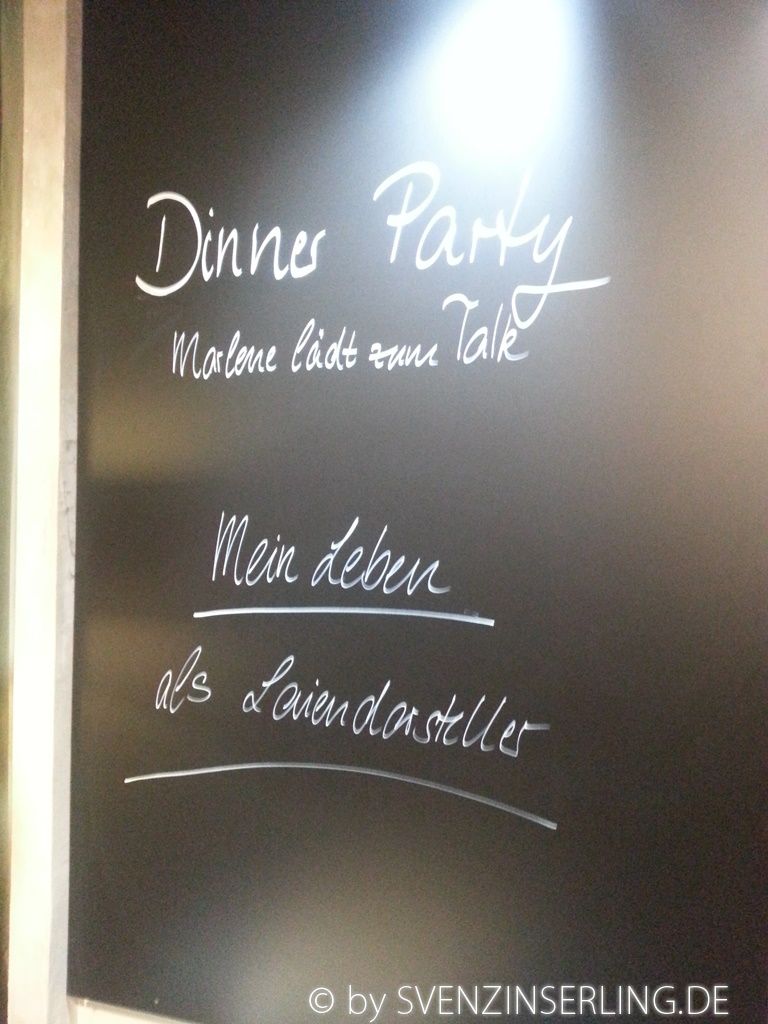 Dinner Party
Marlene lädt zum Talk
Mein Leben
als Laiendarsteller
© by SVENZINSERLING.DE